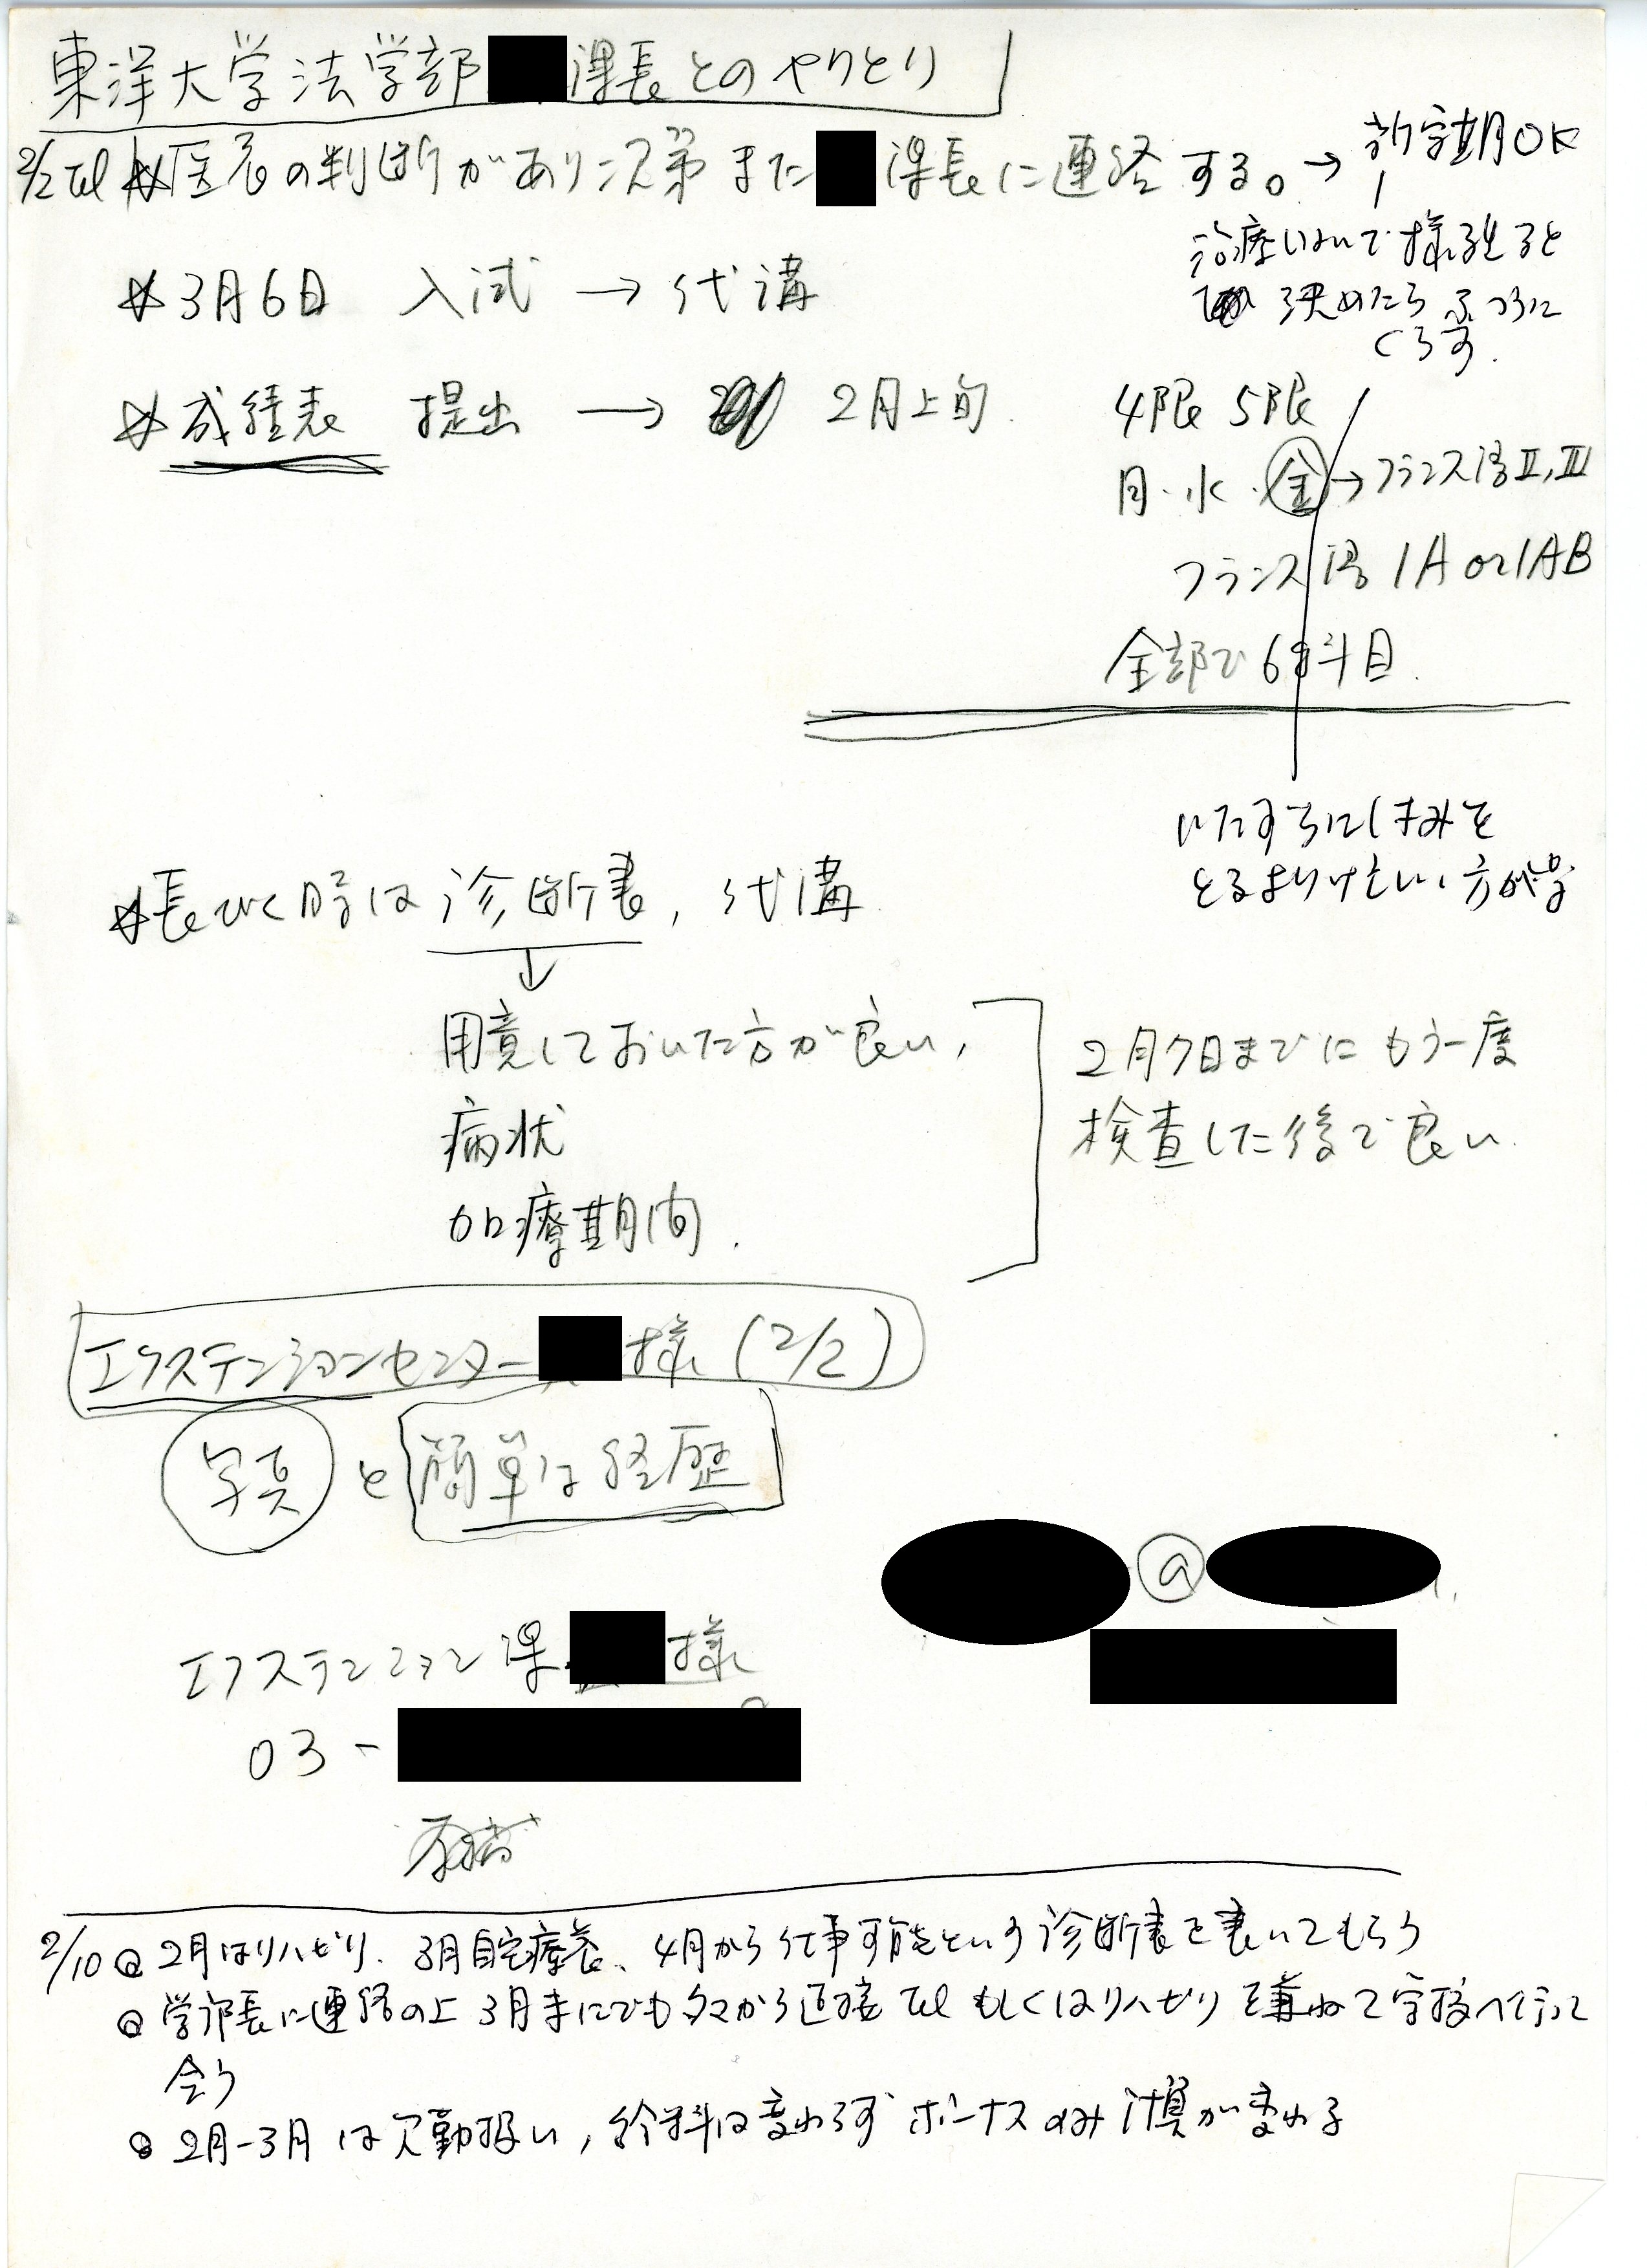 東洋大学法学部 課長とのやりとり
2/2 Tel ☆医者の判断があり次第また 課長に連絡する。→ 新学期OK
治療しないで様子を見ると
決めたら ふつうに
くらす.
☆3月6日 入試 → 代講
☆成績表 提出 → 2月上旬.
4限 5限
月・水・金→フランス語Ⅱ,Ⅲ
フランス語 1A or 1AB
全部で6科目.
いたずらにしまみを
とるよりけした方が
☆長びく時は 診断書, 代講
↓
用意しておいた方が良い,
病状
加療期間.
2月7日までにもう一度
検査した後で良い.
エクステンションセンター 様 (2/2)
写真 と 簡単な経歴
@
エクステンション課 様
03-
2/10 2月はリハビリ、3月自宅療養、4月から仕事可能という診断書を書いてもらう
学部長に連絡の上 3月末にでもタマから直接Tel もしくはリハビリを兼ねて学校へ行って
会う
2月-3月は欠勤扱い, 給料は変わらず ボーナスのみ計算が変わる